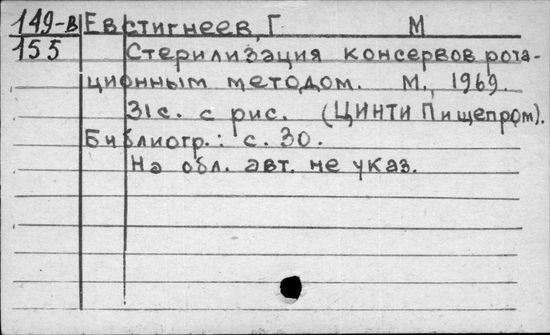 149-В Евстигнеев, Г М
155 Стерилизация консервов рота-
ционным методом. М., 1969.
31с. с рис. (ЦИНТИ Пищепром).
Библиогр.: с. 30.
На обл. авт. не указ.